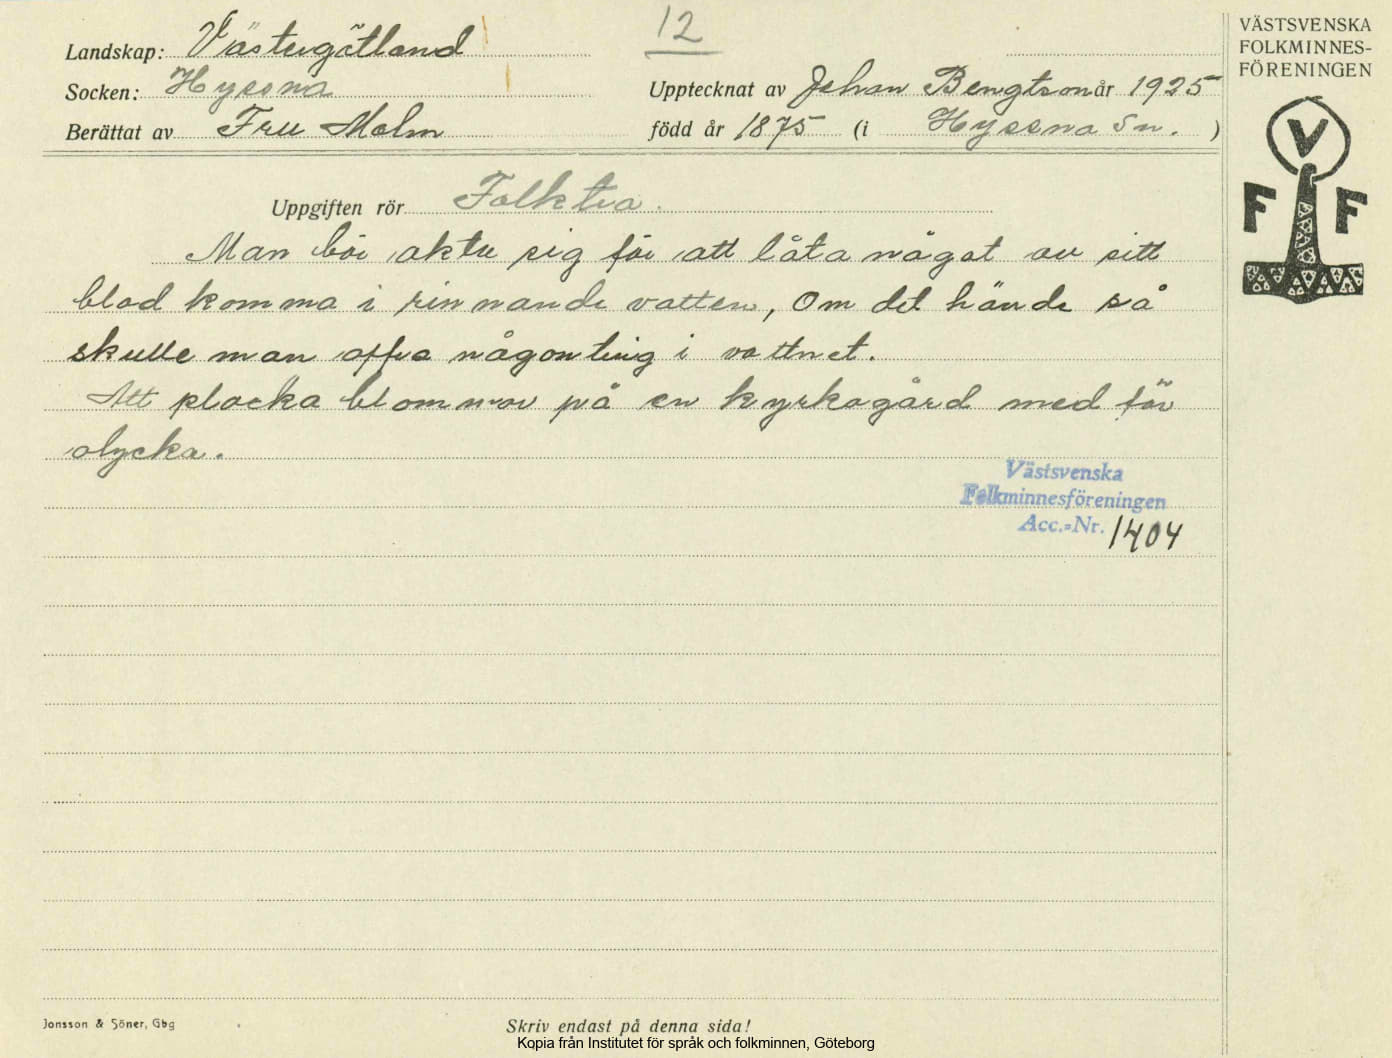 12
Landskap: Västergötland
Socken: Hyssna
Upptecknat av Johan Bengtson år 1925
Berättat av Fru Malm
född år 1875 (i Hyssna sn. )
VÄSTSVENSKA
FOLKMINNES-
FÖRENINGEN
V
F F
Uppgiften rör Folktro.
Man bör akta sig för att låta något av sitt
blod komma i rinnande vatten, Om det hände så
skulle man offra någonting i vattnet.
Att plocka blommor på en kyrkogård medför
olycka.
Västsvenska
Folkminnesföreningen
Acc.=Nr. 1404
Jonsson & Söner, Gbg
Skriv endast på denna sida!
Kopia från Institutet för språk och folkminnen, Göteborg